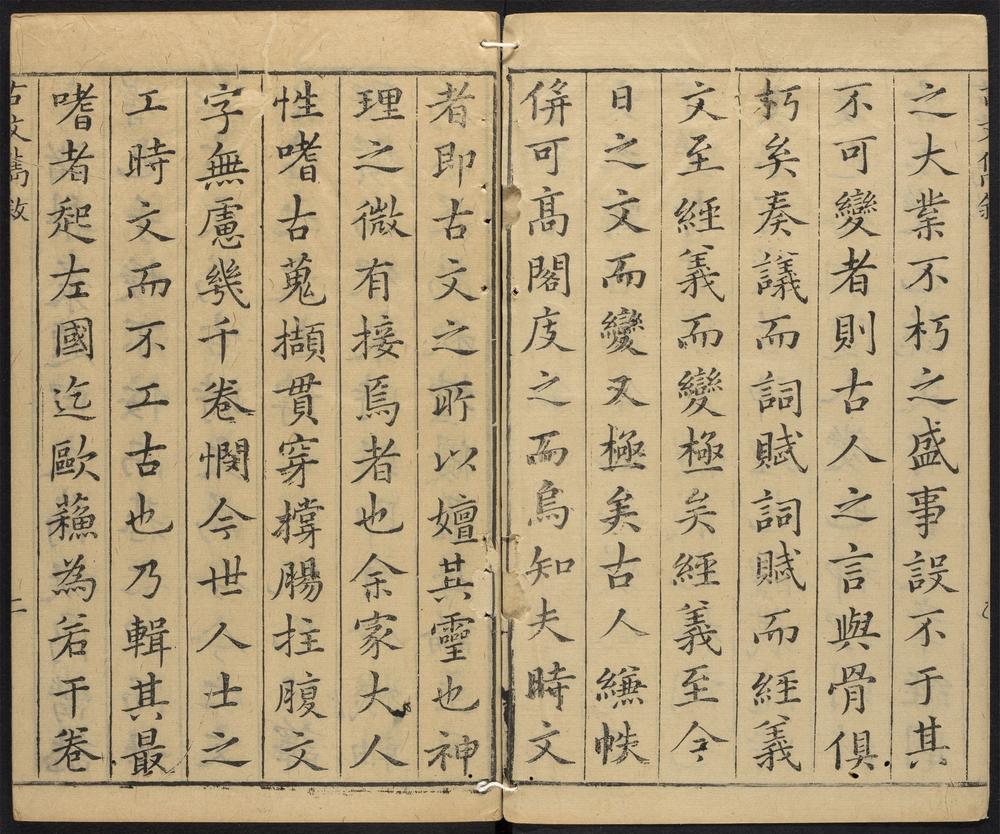 之大業不朽之盛事設不于其
不可變者則古人之言與骨俱
朽矣奏議而詞賦詞賦而經義
文至經義而變極矣經義至今
日之文而變又極矣古人縑帙
併可高閣庋之而烏知夫時文
者即古文之所以嬗其靈也神
理之微有接焉者也余家大人
性嗜古蒐擷貫穿撐腸拄腹文
字無慮幾千卷憫今世人士之
工時文而不工古也乃輯其最
嗜者起左國迄歐蘇為若干卷
二